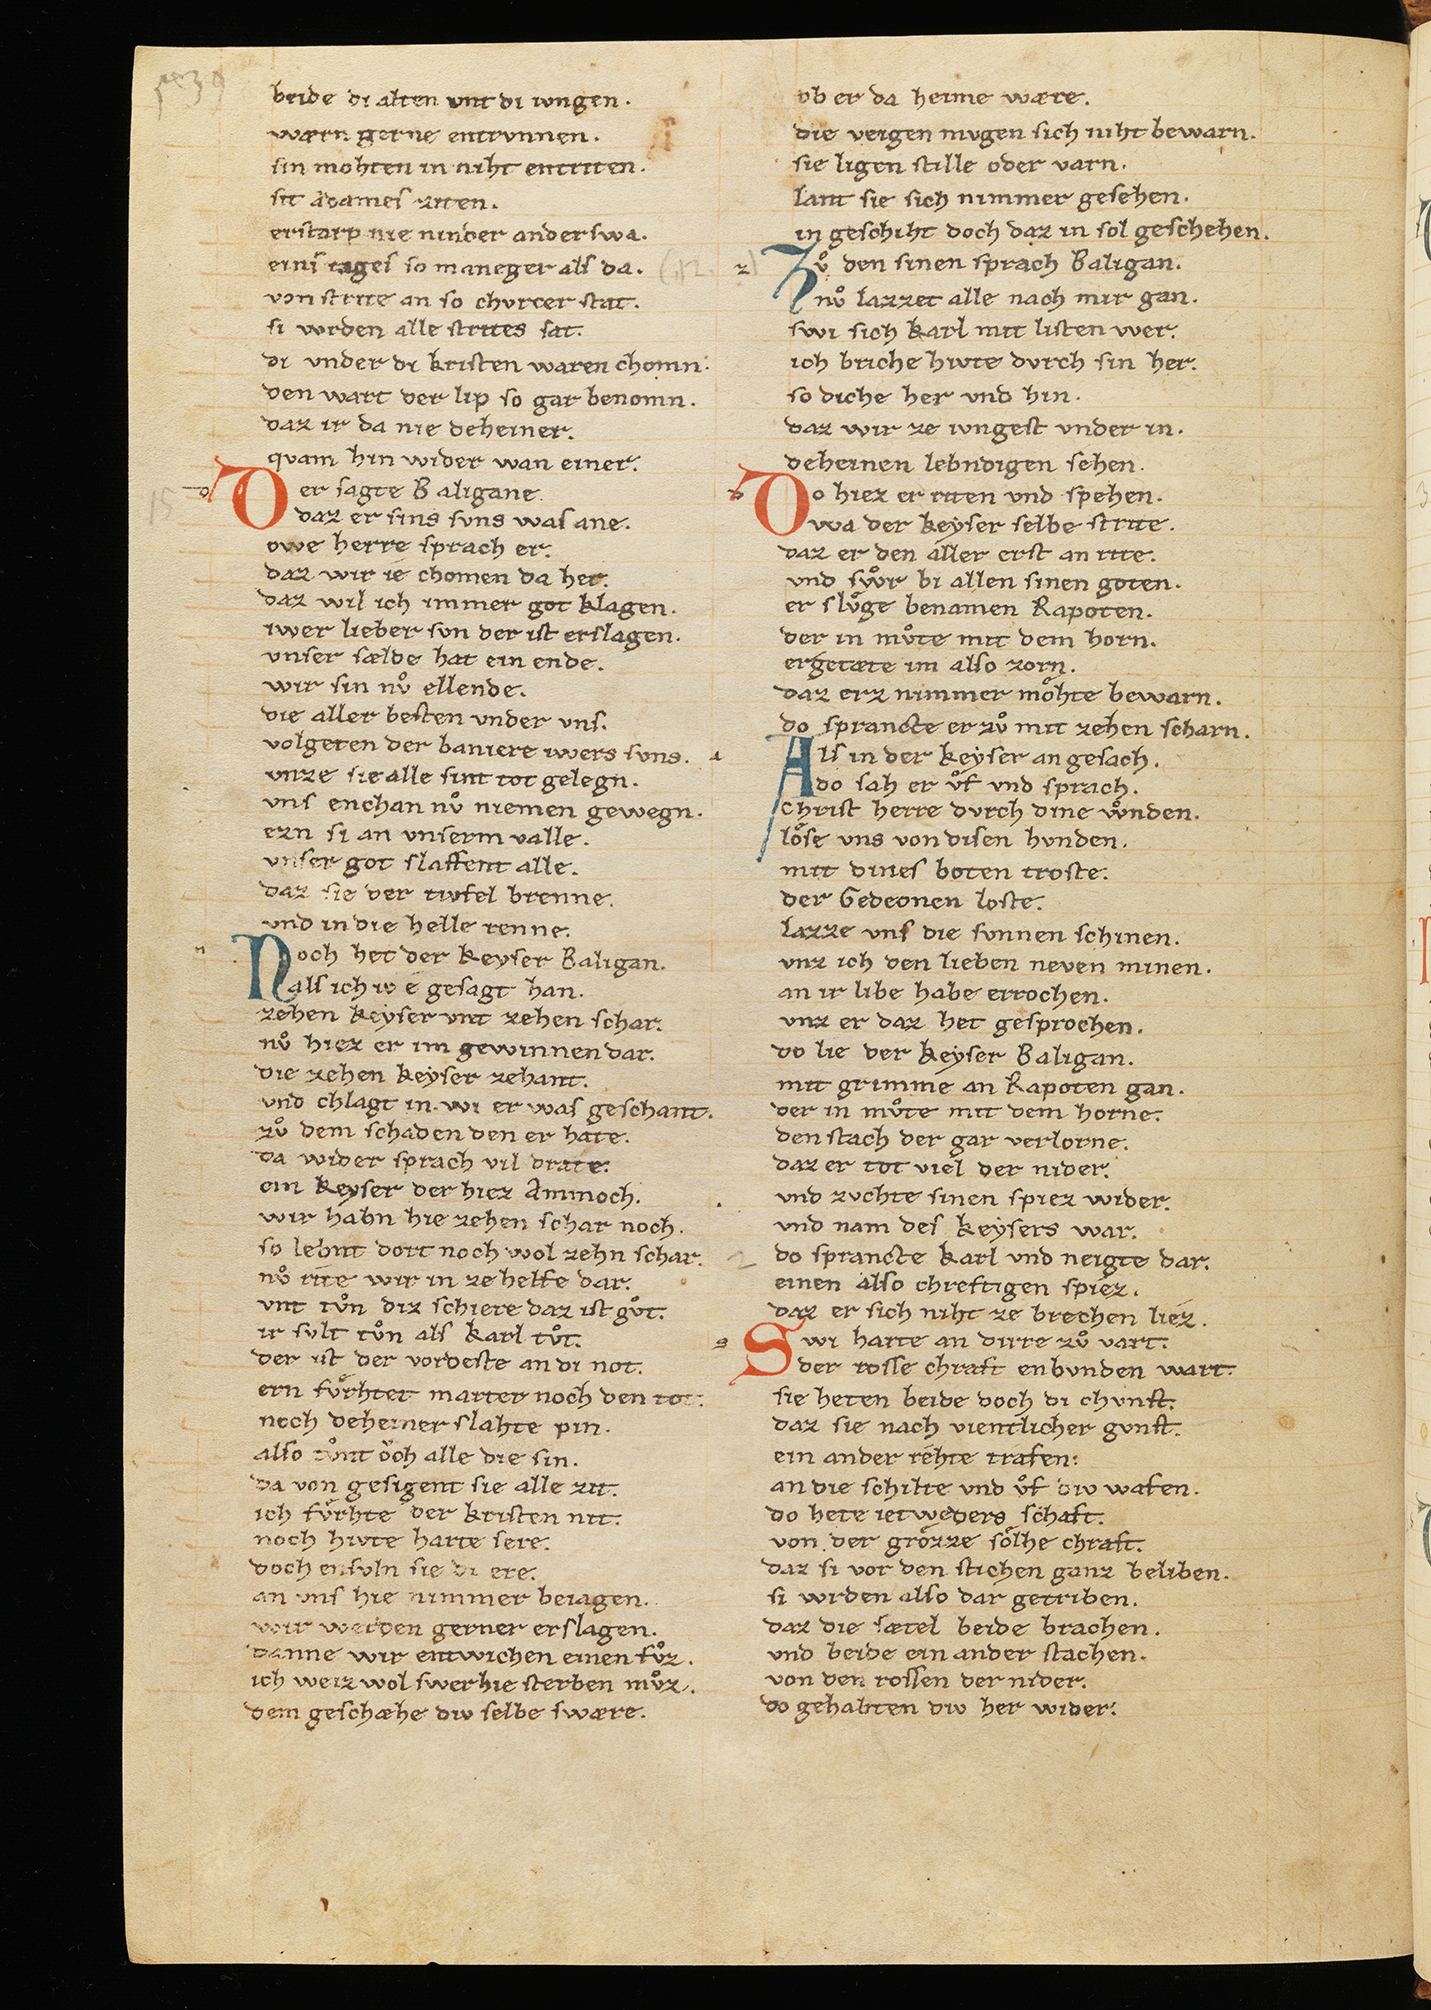 beide di alten vnt di iungen.
wærn gerne entrvnnen.
sin mohten in niht entriten.
sit adames ziten.
erstarp nie ninder anderswa.
eins tages so maneger als da.
von strite an so chvrcer stat.
si wrden alle strites sat.
di vnder di kristen waren chomn.
den wart der lip so gar benomn.
daz ir da nie deheiner.
quam hin wider wan einer.
Der sagte Baligane.
daz er sins svns was ane.
owe herre sprach er.
daz wir ie chomen da her.
daz wil ich immer got klagen.
iwer lieber svn der ist erslagen.
vnser sælde hat ein ende.
wir sin nuͦ ellende.
die aller besten vnder vns.
volgeten der baniere iwers svns.
vnze sie alle sint tot gelegn.
vns enchan nuͦ niemen gewegn.
ern si an vnserm valle.
vnser got slaffent alle.
daz sie der tivfel brenne.
vnd in die helle renne.
Noch het der keyser Baligan.
als ich iv e gesagt han.
zehen keyser vnt zehen schar.
nuͦ hiez er im gewinnen dar.
die zehen keyser zehant.
vnd chlagt in. wi er was geschant.
zuͦ dem schaden den er hate.
da wider sprach vil drate.
ein keyser der hiez Ammoch.
wir habn hie zehen schar noch.
so lebnt dort noch wol zehn schar.
nuͦ rite wir in ze helfe dar.
vnt tuͦn diz schiere daz ist guͦt.
ir svlt tuͦn als karl tuͦt.
der ist der vordeste an di not.
ern fvrhtet marter noch den tot.
noch deheiner slahte pin.
also tuͦnt oͮch alle die sin.
da von gesigent sie alle zit.
ich fvrhte der kristen nit.
noch hivte harte sere.
doch ensvln sie di ere.
an vns hie nimmer beiagen.
wir werden gerner erslagen.
danne wir entwichen einen fuͦz.
ich weiz wol swer hie sterben muͦz.
dem geschæhe div selbe swære.
ob er da heime wære.
die veigen mvgen sich niht bewarn.
sie ligen stille oder varn.
lant sie sich nimmer gesehen.
in geschiht doch daz in sol geschehen.
Zuͦ den sinen sprach Baligan.
nuͦ lazzet alle nach mir gan.
swi sich karl mit listen wer.
ich briche hivte dvrch sin her.
so diche her vnd hin.
daz wir ze ivngest vnder in.
deheinen lebndigen sehen.
Do hiez er riten vnd spehen.
wa der keyser selbe strite.
daz er den aller erst an rite.
vnd swuͦr bi allen sinen goten.
er slvͤge benamen Rapoten.
der in muͦte mit dem horn.
er getæte im also zorn.
daz erz nimmer moͤhte bewarn.
do sprancte er zuͦ mit zehen scharn.
Als in der keyser an gesach.
do sah er uͦf vnd sprach.
christ herre dvrch dine wnden.
loͤse vns von disen hvnden.
mit dines boten troste.
der Gedeonen loste.
lazze vns die svnnen schinen.
vnz ich den lieben neven minen.
an ir libe habe errochen.
vnz er daz het gesprochen.
do lie der keyser Baligan.
mit grimme an Rapoten gan.
der in muͦte mit dem horne.
den stach der gar verlorne.
daz er tot viel der nider.
vnd zvchte sinen spiez wider.
vnd nam des keysers war.
do sprancte karl vnd neigte dar.
einen also chreftigen spiez.
daz er sich niht ze brechen liez.
Swi harte an dirre zuͦ vart.
der rosse chraft enbvnden wart.
sie heten beide doch di chvnst.
daz sie nach vientlicher gvnst.
ein ander rehte trafen.
an die schilte vnd uͦf div wafen.
do hete ietweders schaft.
von der groͤzze soͤlhe chraft.
daz si vor den stichen ganz beliben.
si wrden also dar getriben.
daz die sætel beide brachen.
vnd beide ein ander stachen.
von den rossen der nider.
do gehabten div her wider.